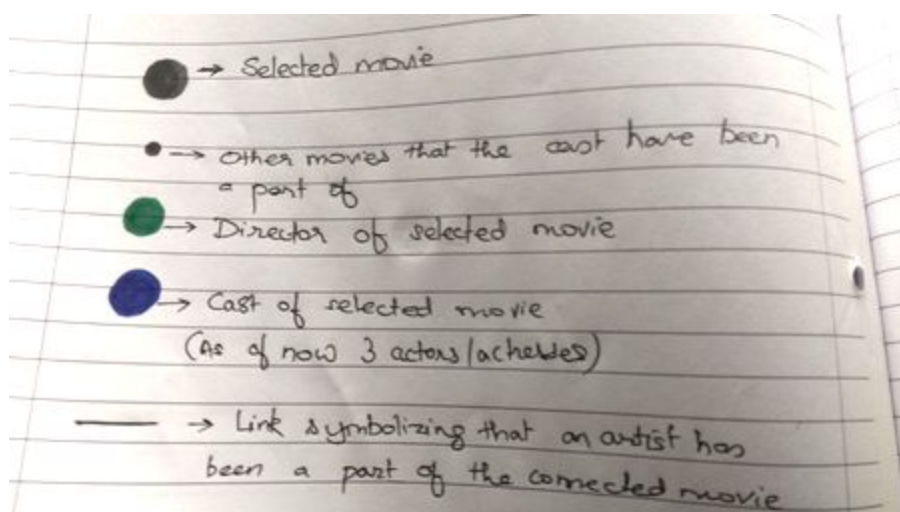 → Selected movie
→ Other movies that the cast have been
a part of
→ Director of selected movie
→ Cast of selected movie
(As of now 3 actors/
→ Link symbolizing that an artist has
been a part of the connected movie